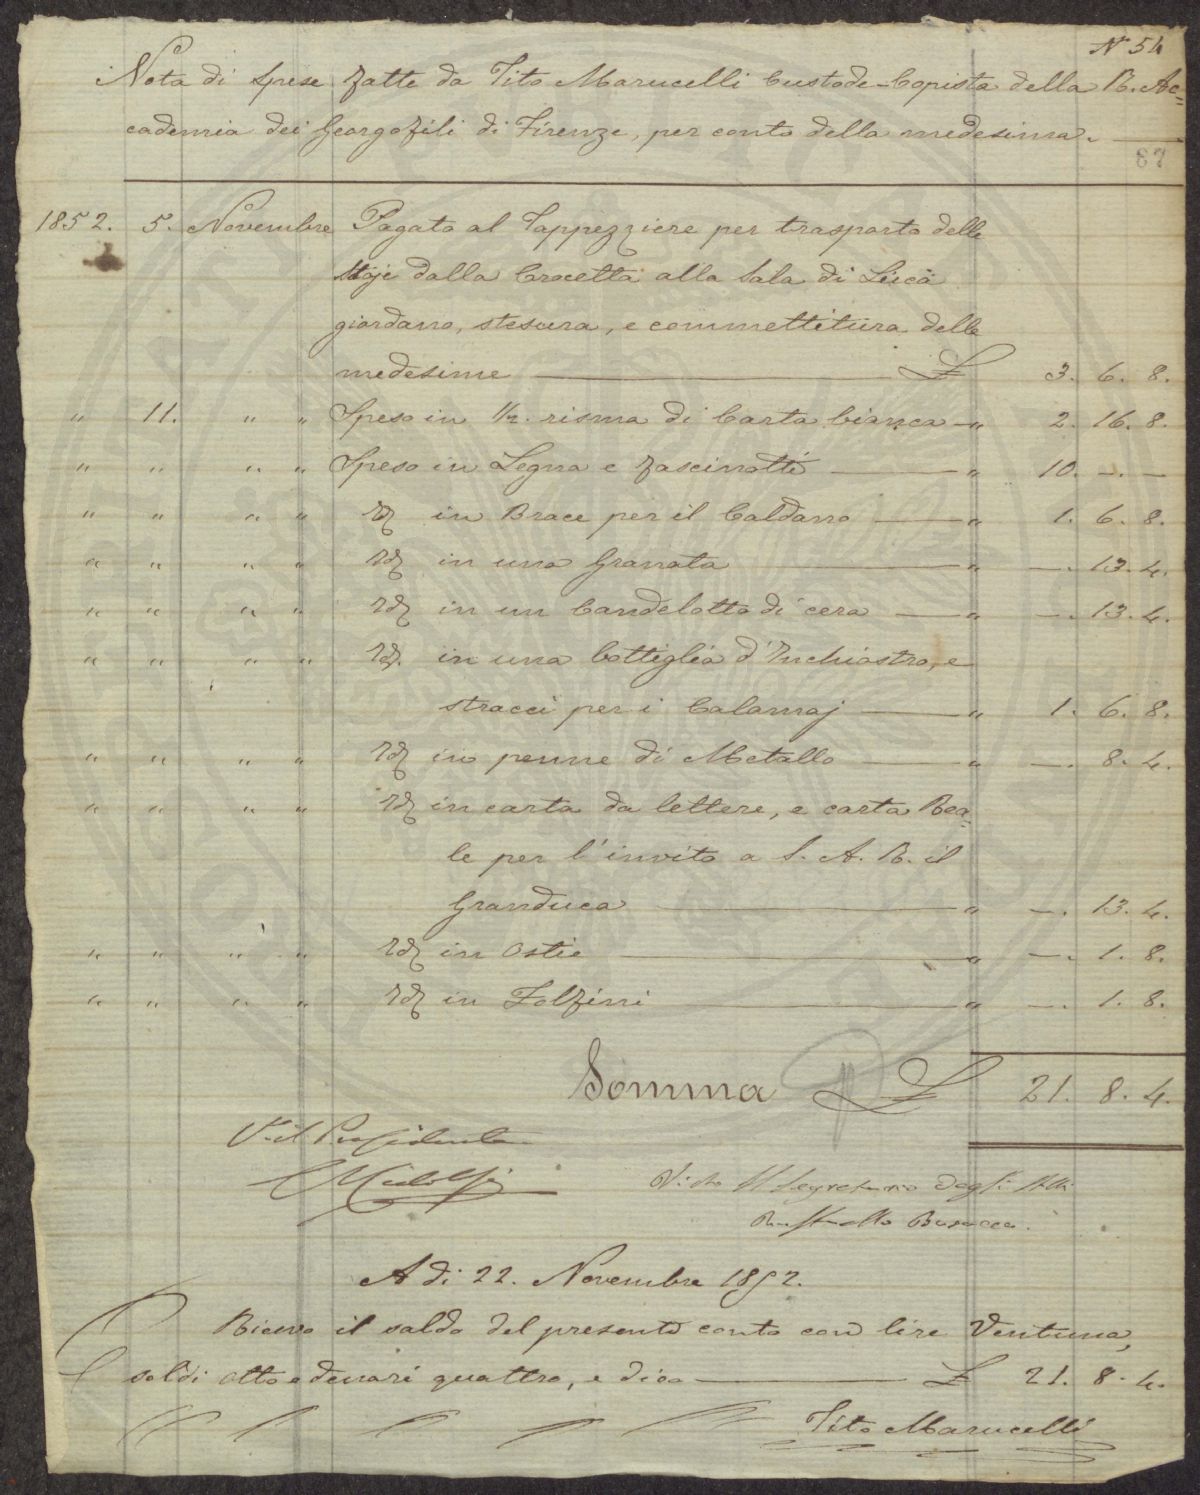 N° 54
Nota di Spese fatte da Tito Marucelli Custode-Copista della R. Ac=
cademia dei Georgofili di Firenze, per conto della medesima.
87
1852. 5. Novembre Pagato al Tappezziere per trasporto delle
Stoje dalla Crocetta alla Sala di Luca
giordano, stesura, e commettitura delle
medesime £ 3. 6. 8.
" 11. " " Speso in 1/2. risma di Carta bianca " 2. 16. 8.
" " " " Speso in Legna e fascinotti " 10. -. -
" " " " Id in Brace per il Caldano " 1. 6. 8.
" " " " Id in una Granata " -. 13. 4.
" " " " Id in un Candelotto di cera " -. 13. 4.
" " " " Id. in una bottiglia d'Inchiostro, e
stracci per i Calamaj " 1. 6. 8.
" " " " Id in penne di Metallo " -. 8. 4.
" " " " Id in carta da lettere, e carta Rea=
le per l'invito a S. A. R. il
Granduca " -. 13. 4.
" " " " Id in Ostie " -. 1. 8.
" " " " Id in Zolfini " -. 1. 8.
Somma £ 21. 8. 4.
V. il Presidente
C Ridolfi
Visto Il Segretario degli Atti
Raffaello Busacca
A di 22. Novembre 1852.
Ricevo il saldo del presente conto con lire Ventuna,
soldi otto e denari quattro, e dico £ 21. 8. 4.
Tito Marucelli